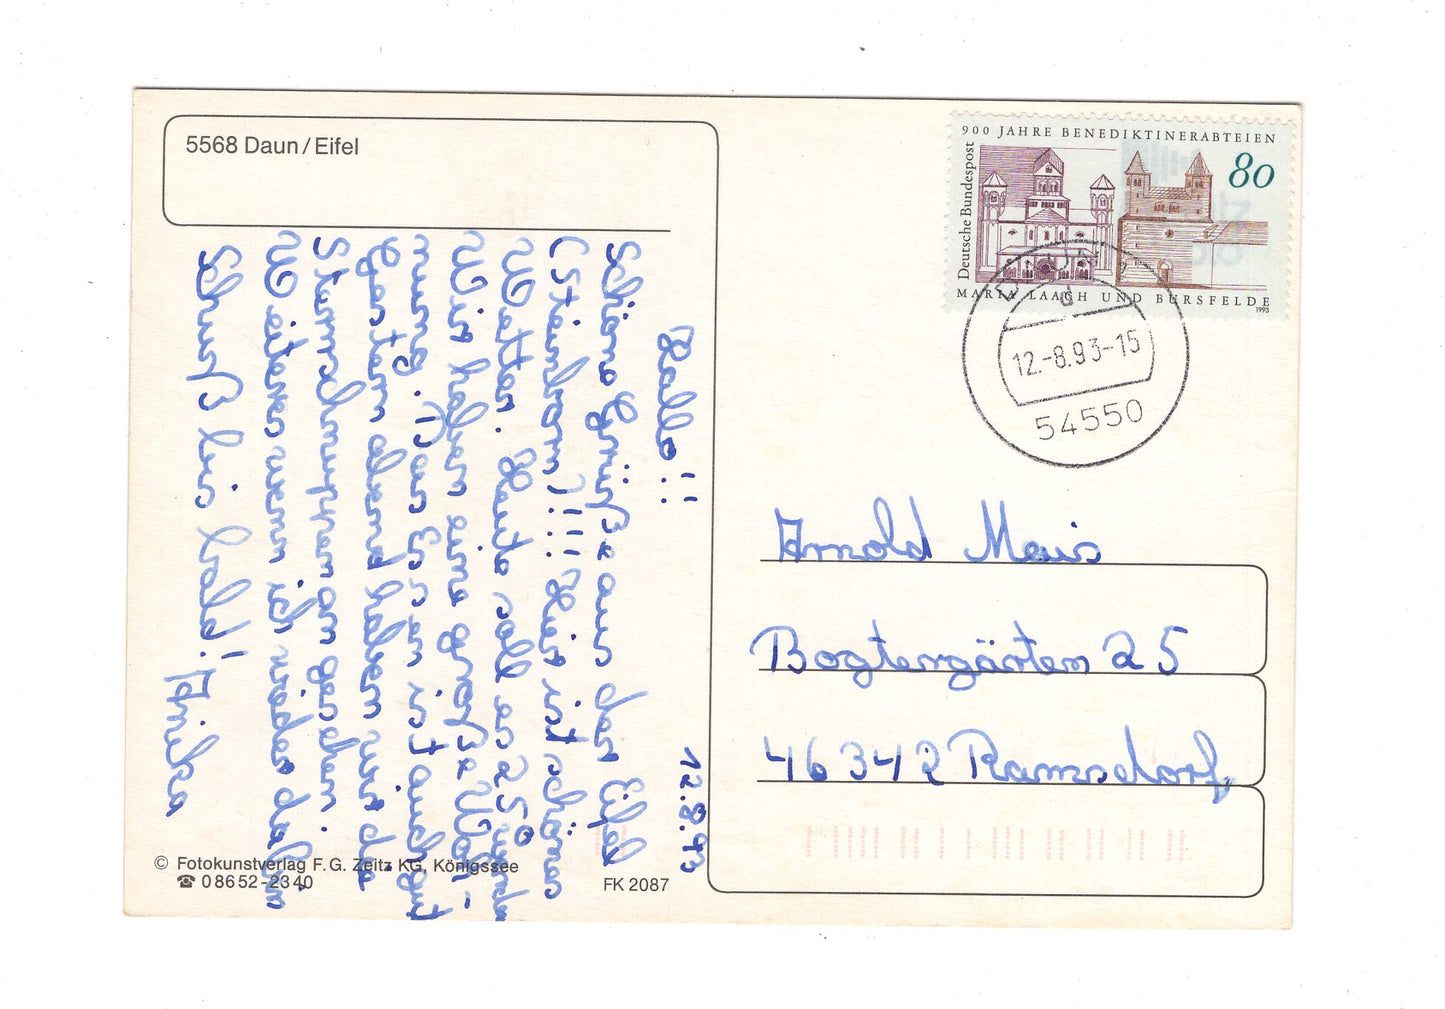 5568 Daun / Eifel
12.8.93
Hallo!!
Schöne Grüße aus der Eifel
(Steinborn)!!!! Hier ist schönes
Wetter. Heute soll es 25° werden
Wir haben eine große Woh-
nung. Das Essen ist auch gut
Gestern abend haben wir das
Stummschnuppern angesehen.
Weiteres wenn ich wieder da bin
Schuß bis bald! Anika
© Fotokunstverlag F. G. Zeitz KG, Königssee
☎ 0 86 52 - 23 40
FK 2087
900 JAHRE BENEDIKTINERABTEIEN
Deutsche Bundespost
80
MARIA LAACH UND BURSFELDE
1993
d
12.-8.93-15
54550
Arnold Mevis
Bogtengärten 25
46342 Ramsdorf